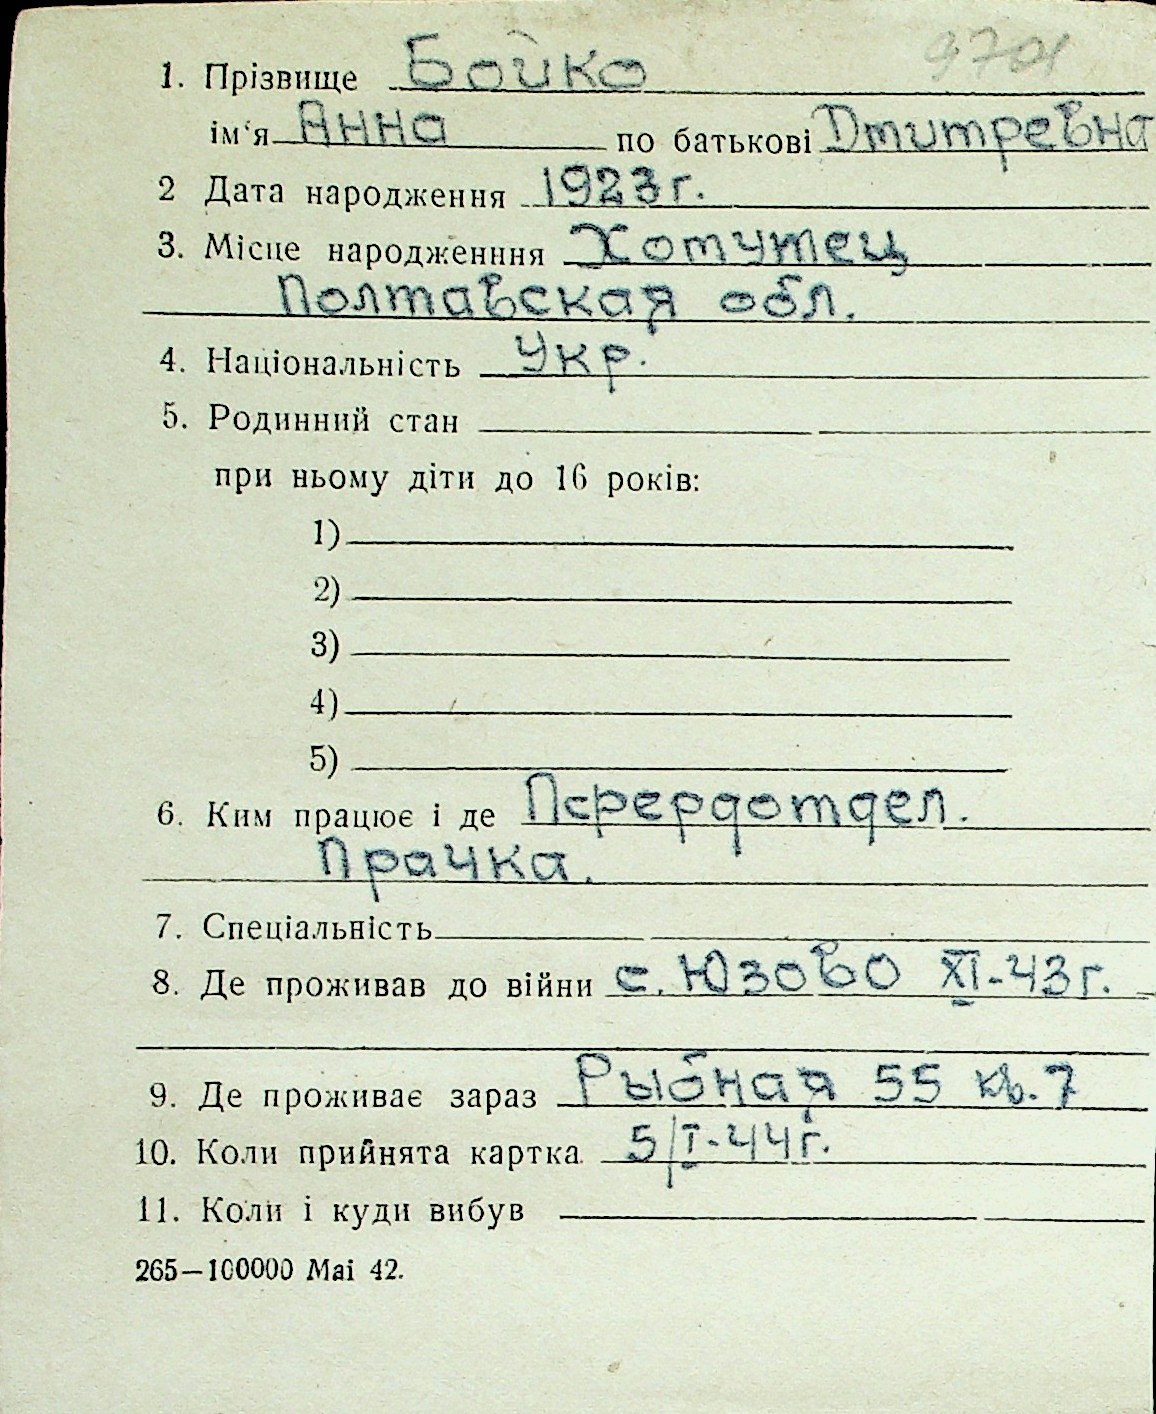 9701
1. Прізвище Бойко
ім‘я Анна по батькові Дмитревна
2 Дата народження 1923 г.
3. Місце народженння Хотутец
Полтавская обл.
4. Національність Укр.
5. Родинний стан
при ньому діти до 16 років:
1)
2)
3)
4)
5)
6. Ким працює і де
Прачка.
7. Спеціальність
8. Де проживав до війни с. Юзово XI-43 г.
9. Де проживає зараз Рыбная 55 кв. 7
10. Коли прийнята картка 5/I-44 г.
11. Коли і куди вибув
265—100000 Mai 42.